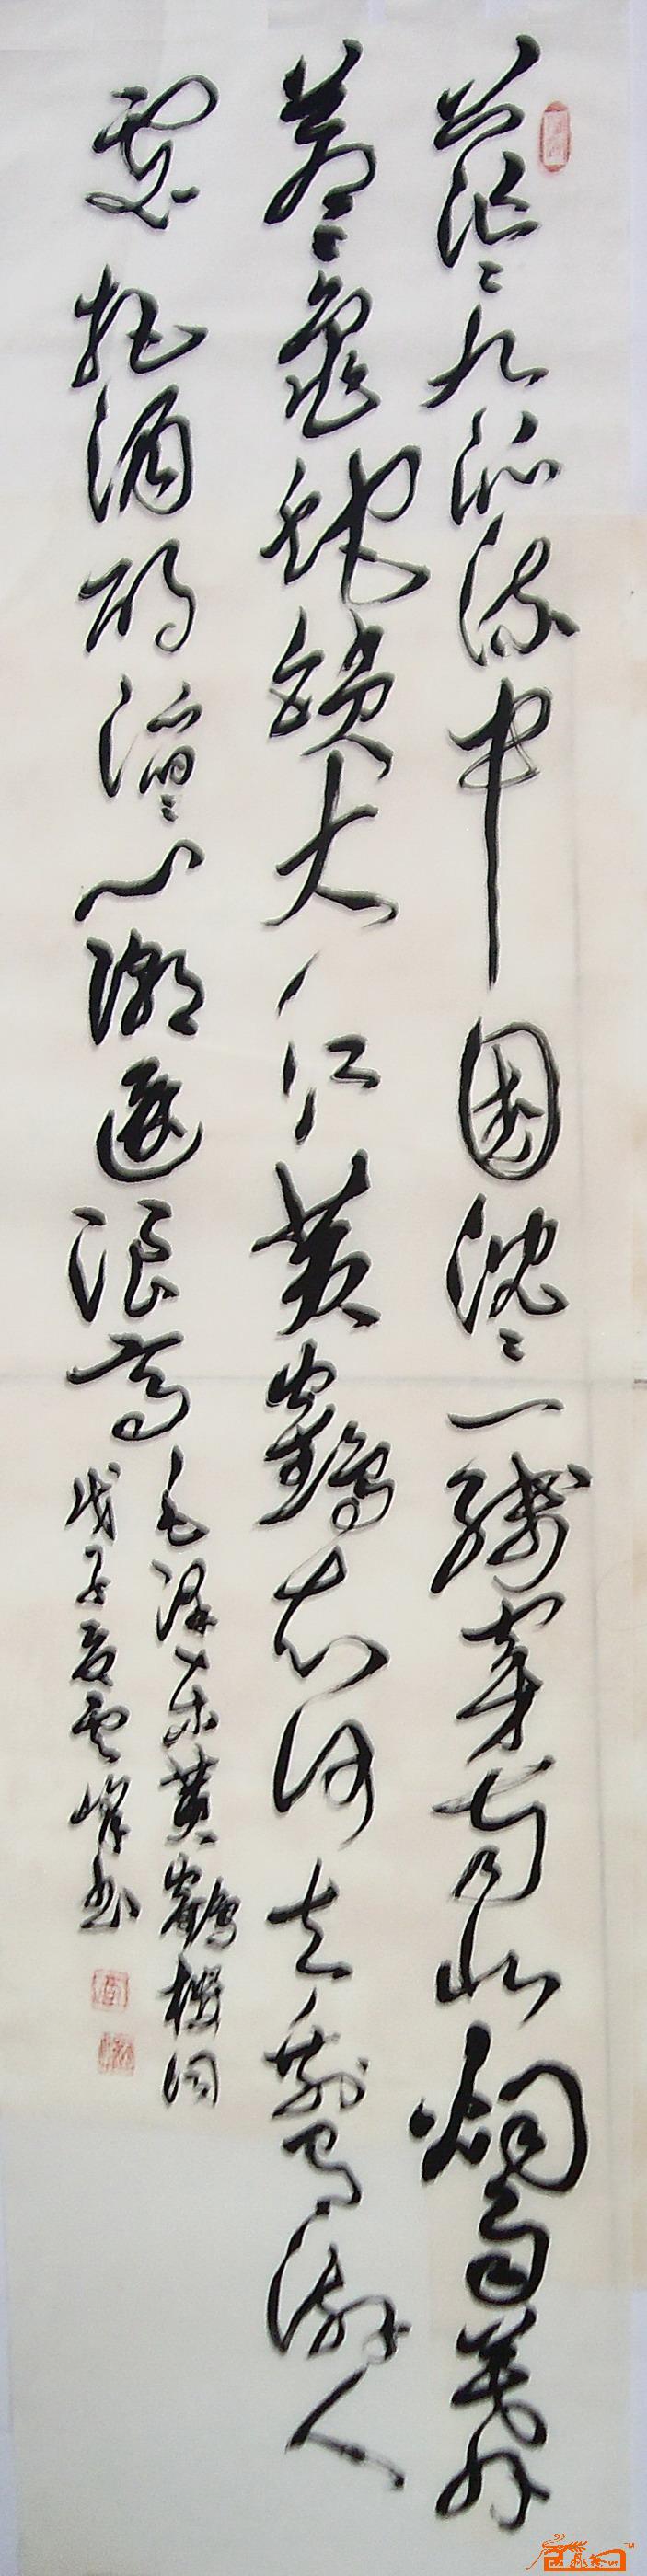 茫々九派流中国沈々一线穿南北烟雨莽
苍々龟蛇锁大江黄鹤知何去剩有游人
处把酒酹滔々心潮逐浪高
毛泽东黄鹤楼词
戊子夏云峰书